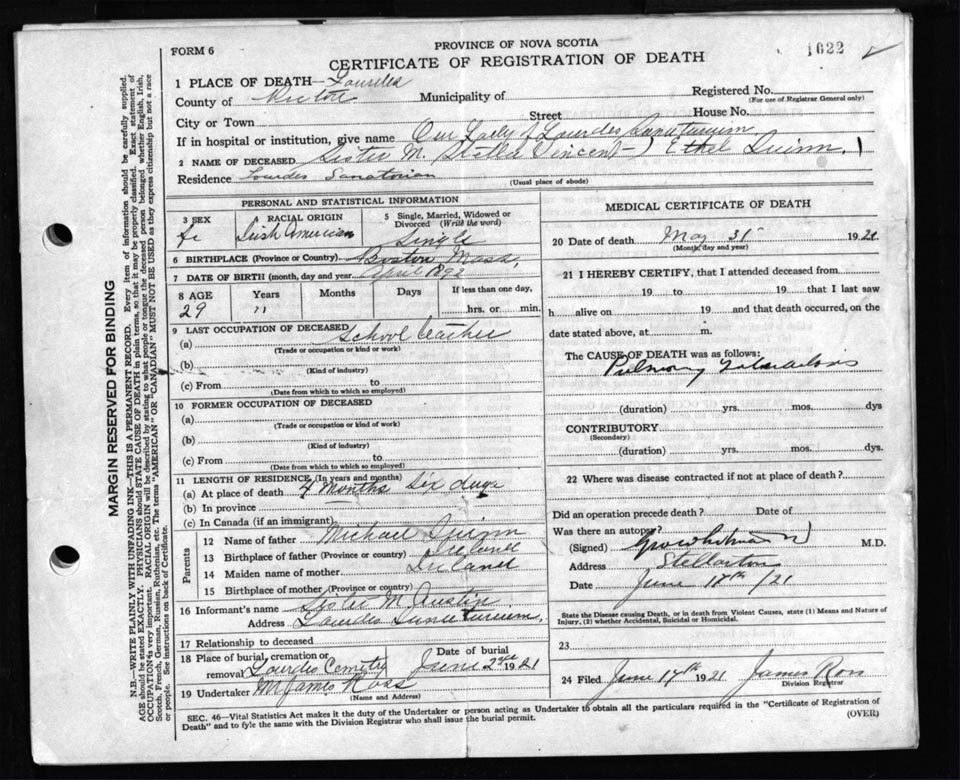 PROVINCE OF NOVA SCOTIA
FORM 6
CERTIFICATE OF REGISTRATION OF DEATH
1622
1 PLACE OF DEATH—Lourdes
County of Pictou Municipality of Registered No.
(For use of Registrar General only)
City or Town Street House No.
If in hospital or institution, give name Our Lady of Lourdes Sanatorium
2 NAME OF DECEASED Sister M. (Stella Vincent—) Ethel Quinn.)
Residence Lourdes Sanatorian
(Usual place of abode)
PERSONAL AND STATISTICAL INFORMATION
3 SEX
Fe
RACIAL ORIGIN
Irish American
5 Single, Married, Widowed or Divorced (Write the word)
Single
6 BIRTHPLACE (Province or Country) Boston Mass,
7 DATE OF BIRTH (month, day and year) April 1892
8 AGE Years Months Days If less than one day,
29 " hrs. or min.
9 LAST OCCUPATION OF DECEASED
(a) School teacher
(Trade or occupation or kind or work)
(b)
(Kind of industry)
(c) From to
(Date from which to which so employed)
10 FORMER OCCUPATION OF DECEASED
(a)
(Trade or occupation or kind of work)
(b)
(Kind of industry)
(c) From to
(Date from which to which so employed)
11 LENGTH OF RESIDENCE (In years and months)
(a) At place of death 4 Months six days
(b) In province
(c) In Canada (if an immigrant)
Parents
12 Name of father Michael Quinn
13 Birthplace of father (Province or country) Ireland
14 Maiden name of mother Ireland
15 Birthplace of mother (Province or country)
16 Informant's name Sister M. Austin
Address Lourdes Sanatorium,
17 Relationship to deceased
18 Place of burial, cremation or removal Lourdes Cemetry Date of burial June 2nd 1921
19 Undertaker M James Ross
(Name and Address)
MEDICAL CERTIFICATE OF DEATH
20 Date of death May 31 1921
(Month, day and year)
21 I HEREBY CERTIFY, that I attended deceased from
19 to 19 that I last saw
h alive on 19 and that death occurred, on the
date stated above, at m.
The CAUSE OF DEATH was as follows:
Pulmonary Tuberculosis
(duration) yrs. mos. dys
CONTRIBUTORY
(Secondary)
(duration) yrs. mos. dys
22 Where was disease contracted if not at place of death?
Did an operation precede death? Date of
Was there an autopsy?
(Signed) M.D.
Address Stellarton
Date June 17th /21
State the Disease causing Death, or in death from Violent Causes, state (1) Means and Nature of Injury, (2) whether Accidental, Suicidal or Homicidal.
23
24 Filed June 17th 1921 James Ross
Division Registrar
SEC. 46—Vital Statistics Act makes it the duty of the Undertaker or person acting as Undertaker to obtain all the particulars required in the "Certificate of Registration of
Death" and to fyle the same with the Division Registrar who shall issue the burial permit.
(OVER)
MARGIN RESERVED FOR BINDING
N.B.—WRITE PLAINLY WITH UNFADING INK—THIS IS A PERMANENT RECORD. Every item of information should be carefully supplied.
AGE should be stated EXACTLY. PHYSICIANS should STATE CAUSE OF DEATH in plain terms, so that it may be properly classified. Exact statement of
OCCUPATION is very important. RACIAL ORIGIN will be described by stating to what people or tongue the deceased person belonged whether English, Irish,
Scotch, French, German, Russian, Ruthenian, etc. The terms "AMERICAN" OR "CANADIAN" MUST NOT BE USED as they express citizenship but not a race
or people. See instructions on back of Certificate.